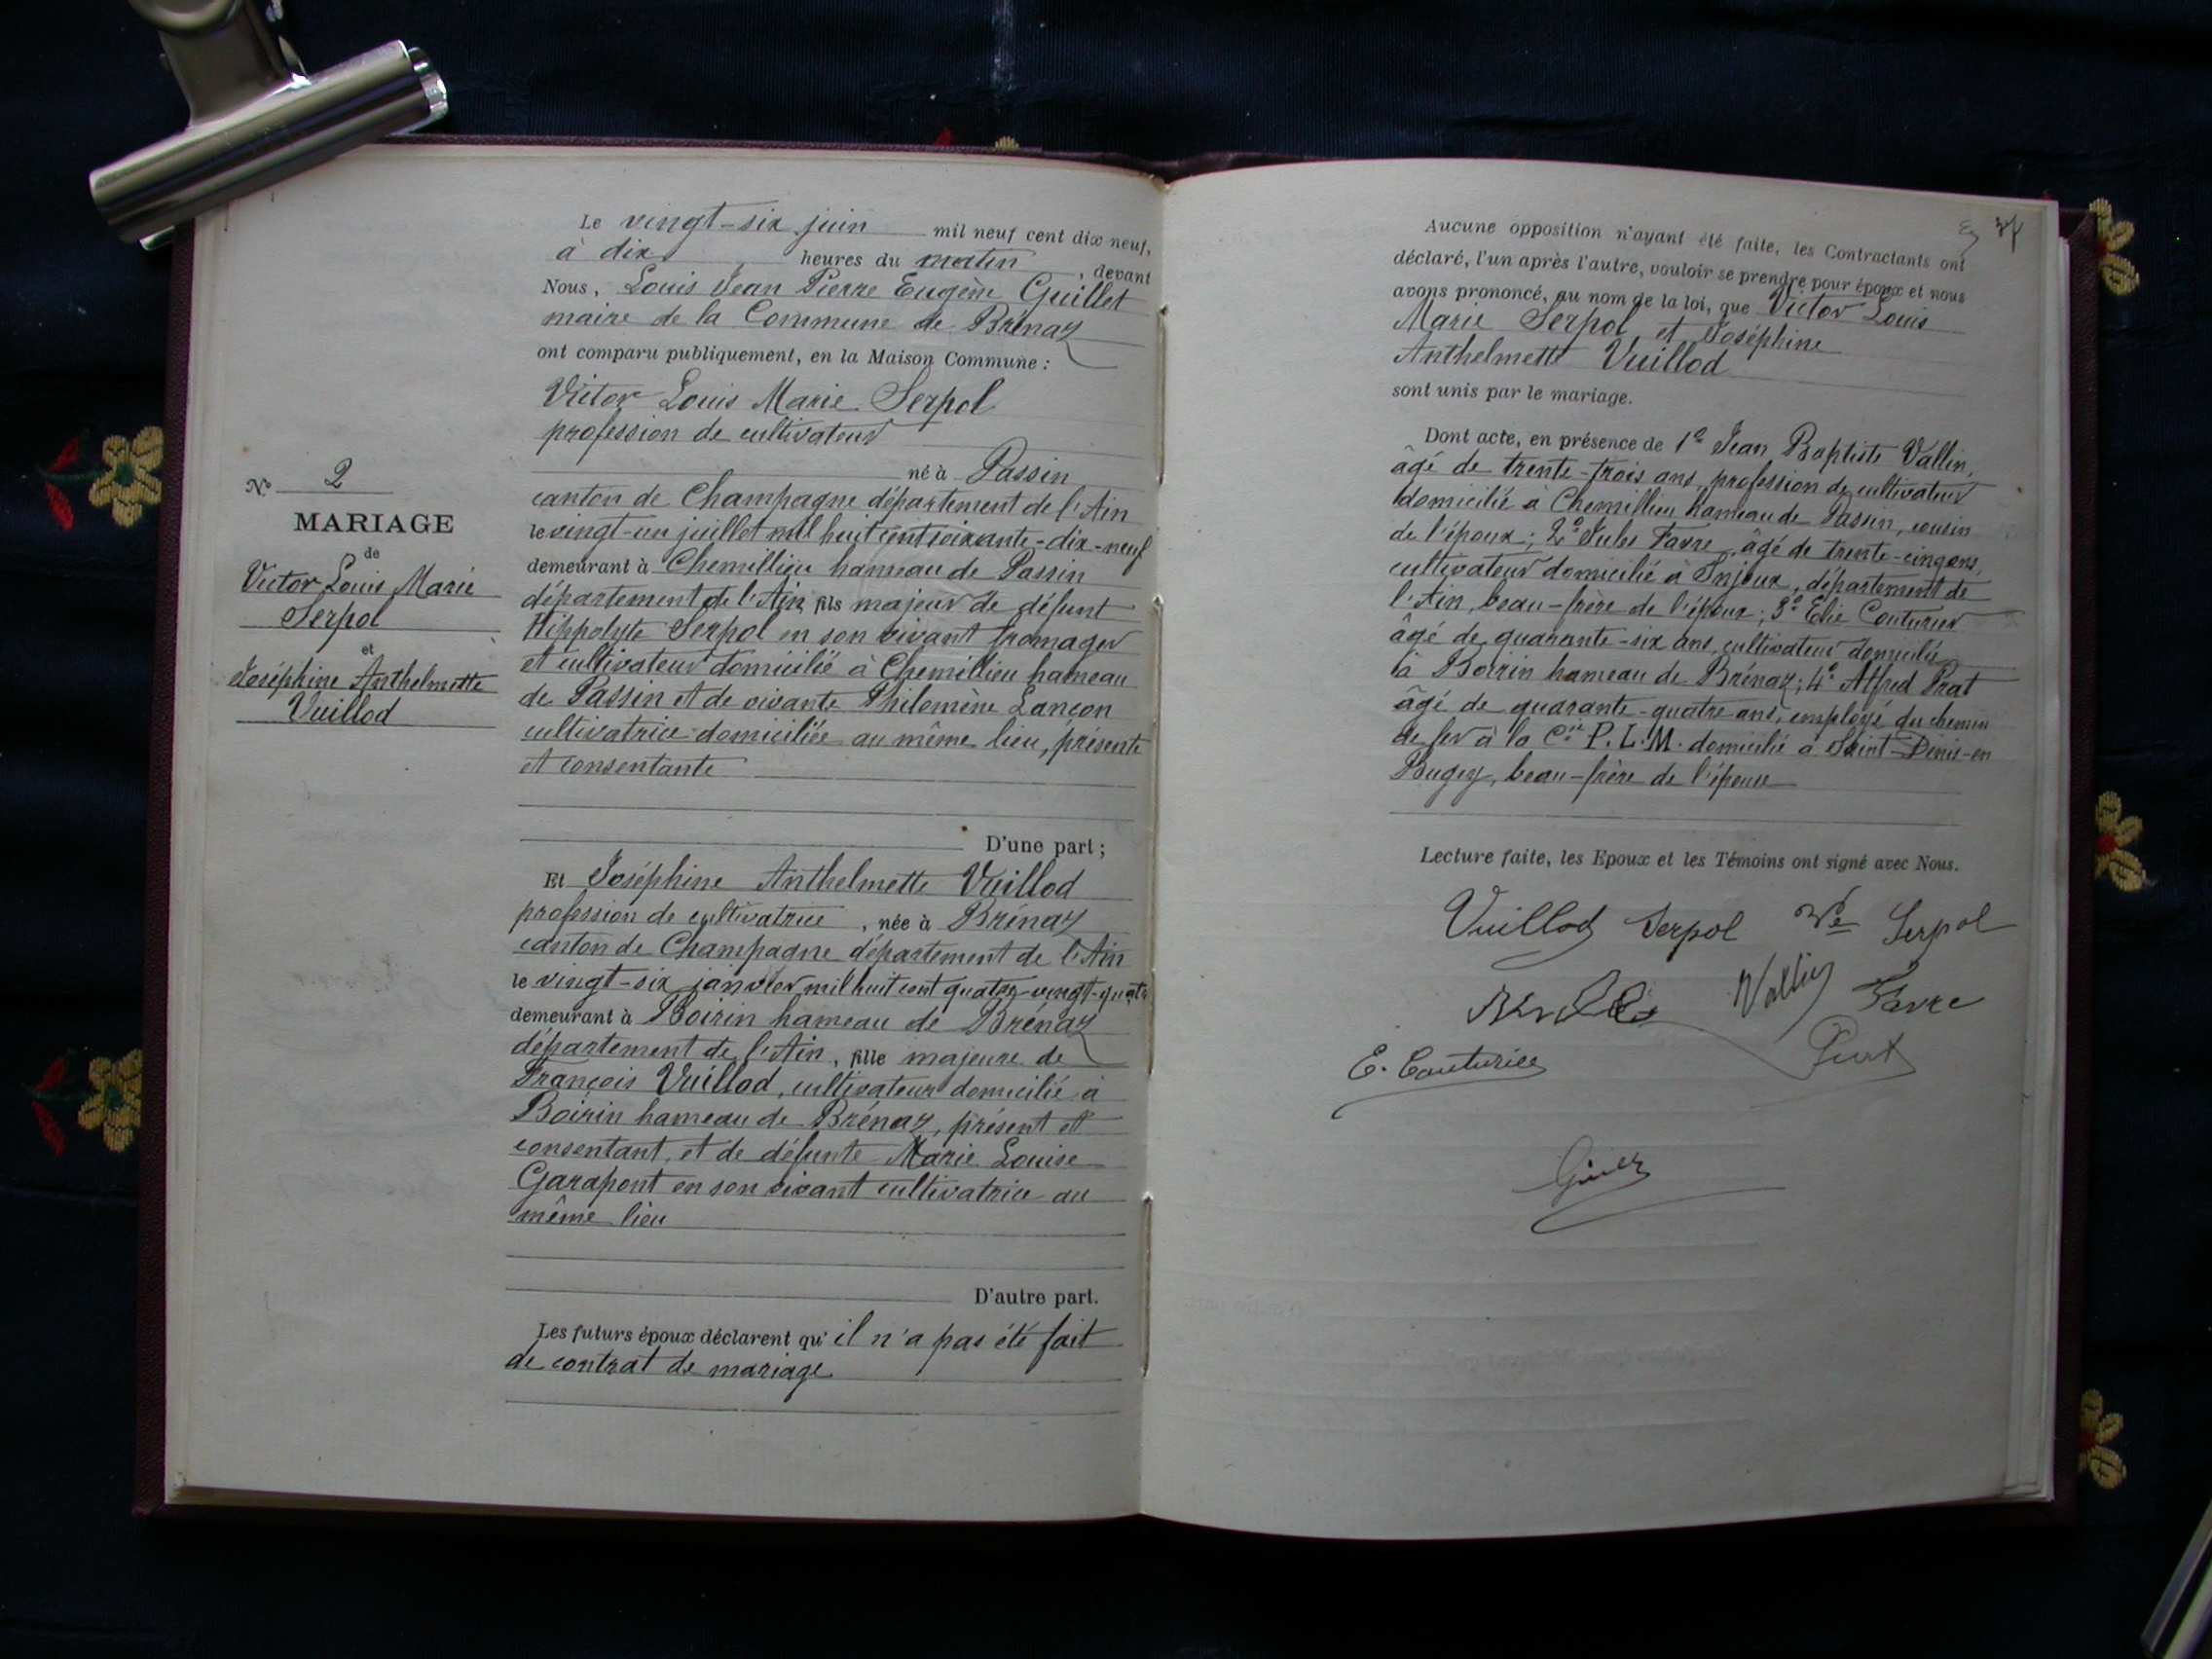 N° 2
MARIAGE
de
Victor Louis Marie
Serpol
et
Joséphine Anthelmette
Vuillod
Le vingt-six juin mil neuf cent dix neuf,
à dix heures du matin, devant
Nous, Louis Jean Pierre Eugène Guillet
maire de la Commune de Brénaz
ont comparu publiquement, en la Maison Commune :
Victor Louis Marie Serpol
profession de cultivateur
né à Passin
canton de Champagne département de l'Ain
le vingt-un juillet mil huit cent soixante-dix-neuf
demeurant à Chemillieu hameau de Passin
département de l'Ain, fils majeur de défunt
Hippolyte Serpol en son vivant fromager
et cultivateur domicilié à Chemillieu hameau
de Passin et de vivante Philomène Lançon
cultivatrice domiciliée au même lieu, présente
et consentante
D'une part ;
Et Joséphine Anthelmette Vuillod
profession de cultivatrice, née à Brénaz
canton de Champagne département de l'Ain
le vingt-six janvier mil huit cent quatre-vingt-quatre
demeurant à Boirin hameau de Brénaz
département de l'Ain, fille majeure de
François Vuillod, cultivateur domicilié à
Boirin hameau de Brénaz, présent et
consentant, et de défunte Marie Louise
Garapont en son vivant cultivatrice au
même lieu
D'autre part.
Les futurs époux déclarent qu'il n'a pas été fait
de contrat de mariage
Aucune opposition n'ayant été faite, les Contractants ont
déclaré, l'un après l'autre, vouloir se prendre pour époux et nous
avons prononcé, au nom de la loi, que Victor Louis
Marie Serpol et Joséphine
Anthelmette Vuillod
sont unis par le mariage.
Dont acte, en présence de 1° Jean Baptiste Vallin,
âgé de trente-trois ans, profession de cultivateur
domicilié à Chemillieu hameau de Passin, cousin
de l'époux ; 2° Jules Favre, âgé de trente-cinq ans,
cultivateur domicilié à Injoux, département de
l'Ain, beau-frère de l'époux ; 3° Elie Couturier
âgé de quarante-six ans, cultivateur domicilié
à Boirin hameau de Brénaz ; 4° Alfred Prat
âgé de quarante-quatre ans, employé du chemin
de fer à la Cie P.L.M. domicilié à Saint-Denis-en
Bugey, beau-frère de l'épouse
Lecture faite, les Epoux et les Témoins ont signé avec Nous.
Vuillod Serpol Ve Serpol
Vallin Favre
E. Couturier Prat